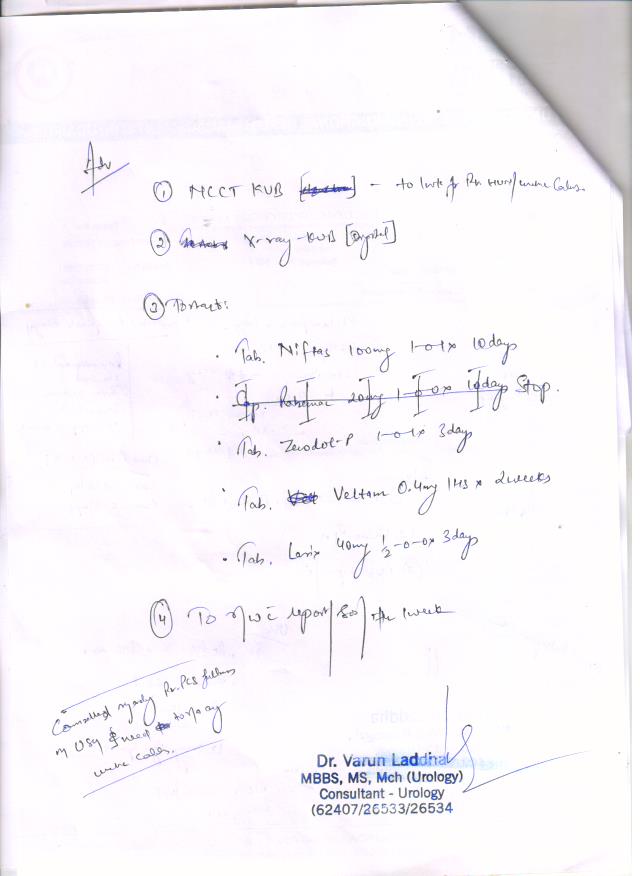 Adv
① NCCT KUB [ ] - to look for Rt HUN/ureteric Calculus.
② X-ray-KUB [Digital]
③ To start:
· Tab. Niftas 100mg 1-0-1 x 10 days
· Cap. 20mg 1-0-0 x 10 days Stop.
· Tab. Zerodol-P 1-0-1 x 3 days
· Tab. Veltam 0.4mg 1 HS x 2 weeks
· Tab. Lasix 40mg ½-0-0 x 3 days
④ To r/w c report / SOS / after 1 week
Counselled regarding Rt. PCS fullness
in USG & need to r/o any
ureteric calculus.
Dr. Varun Laddha
MBBS, MS, Mch (Urology)
Consultant - Urology
(62407/26533/26534